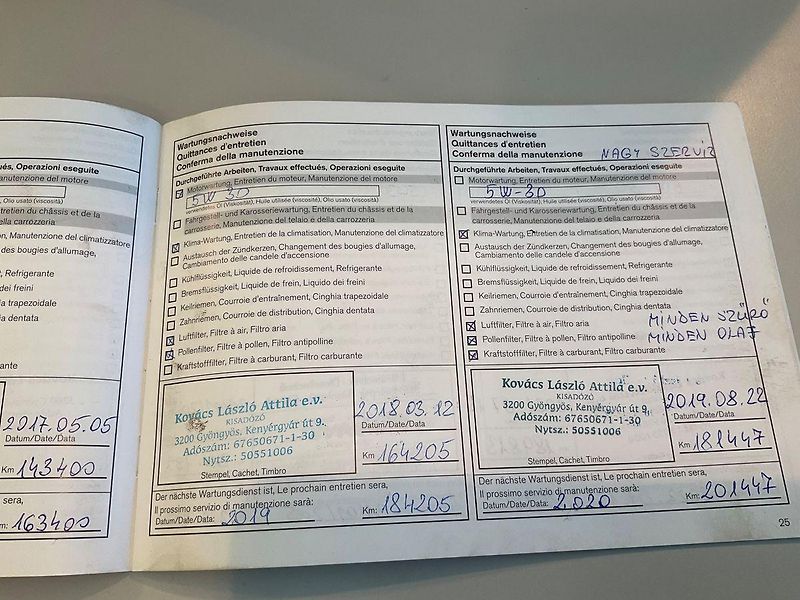 és, Operazioni eseguite
anutenzione del motore
Olio usato (viscosità)
tretien du châssis et de la
o e della carrozzeria
anutenzione del climatizzatore
des bougies d'allumage,
t, Refrigerante
ei freini
a trapezoidale
a dentata
rante
2017.05.05
Datum/Date/Data
Km 143400
sera,
m: 163400
Wartungsnachweise
Quittances d'entretien
Conferma della manutenzione
Durchgeführte Arbeiten, Travaux effectués, Operazioni eseguite
Motorwartung, Entretien du moteur, Manutenzione del motore
5W-30
verwendetes Öl (Viskosität), Huile utilisée (viscosité), Olio usato (viscosità)
Fahrgestell- und Karosseriewartung, Entretien du châssis et de la
carrosserie, Manutenzione del telaio e della carrozzeria
Klima-Wartung, Entretien de la climatisation, Manutenzione del climatizzatore
Austausch der Zündkerzen, Changement des bougies d'allumage,
Cambiamento delle candele d'accensione
Kühlflüssigkeit, Liquide de refroidissement, Refrigerante
Bremsflüssigkeit, Liquide de frein, Liquido dei freini
Keilriemen, Courroie d'entraînement, Cinghia trapezoidale
Zahnriemen, Courroie de distribution, Cinghia dentata
Luftfilter, Filtre à air, Filtro aria
Pollenfilter, Filtre à pollen, Filtro antipolline
Kraftstofffilter, Filtre à carburant, Filtro carburante
Kovács László Attila e.v.
KISADÓZÓ
3200 Gyöngyös, Kenyérgyár út 9.
Adószám: 67650671-1-30
Nytsz.: 50551006
Stempel, Cachet, Timbro
2018.03.12
Datum/Date/Data
Km 164205
Der nächste Wartungsdienst ist, Le prochain entretien sera,
Il prossimo servizio di manutenzione sarà:
Datum/Date/Data: 2019
Km: 184205
Wartungsnachweise
Quittances d'entretien
Conferma della manutenzione NAGY SZERVIZ
Durchgeführte Arbeiten, Travaux effectués, Operazioni eseguite
Motorwartung, Entretien du moteur, Manutenzione del motore
5W-30
verwendetes Öl (Viskosität), Huile utilisée (viscosité), Olio usato (viscosità)
Fahrgestell- und Karosseriewartung, Entretien du châssis et de la
carrosserie, Manutenzione del telaio e della carrozzeria
Klima-Wartung, Entretien de la climatisation, Manutenzione del climatizzatore
Austausch der Zündkerzen, Changement des bougies d'allumage,
Cambiamento delle candele d'accensione
Kühlflüssigkeit, Liquide de refroidissement, Refrigerante
Bremsflüssigkeit, Liquide de frein, Liquido dei freini
Keilriemen, Courroie d'entraînement, Cinghia trapezoidale
Zahnriemen, Courroie de distribution, Cinghia dentata
Luftfilter, Filtre à air, Filtro aria MINDEN SZŰRŐ
Pollenfilter, Filtre à pollen, Filtro antipolline MINDEN OLAJ
Kraftstofffilter, Filtre à carburant, Filtro carburante
Kovács László Attila e.v.
KISADÓZÓ
3200 Gyöngyös, Kenyérgyár út 9.
Adószám: 67650671-1-30
Nytsz.: 50551006
Stempel, Cachet, Timbro
2019.08.22
Datum/Date/Data
Km 181447
Der nächste Wartungsdienst ist, Le prochain entretien sera,
Il prossimo servizio di manutenzione sarà:
Datum/Date/Data: 2020
Km: 201447
25